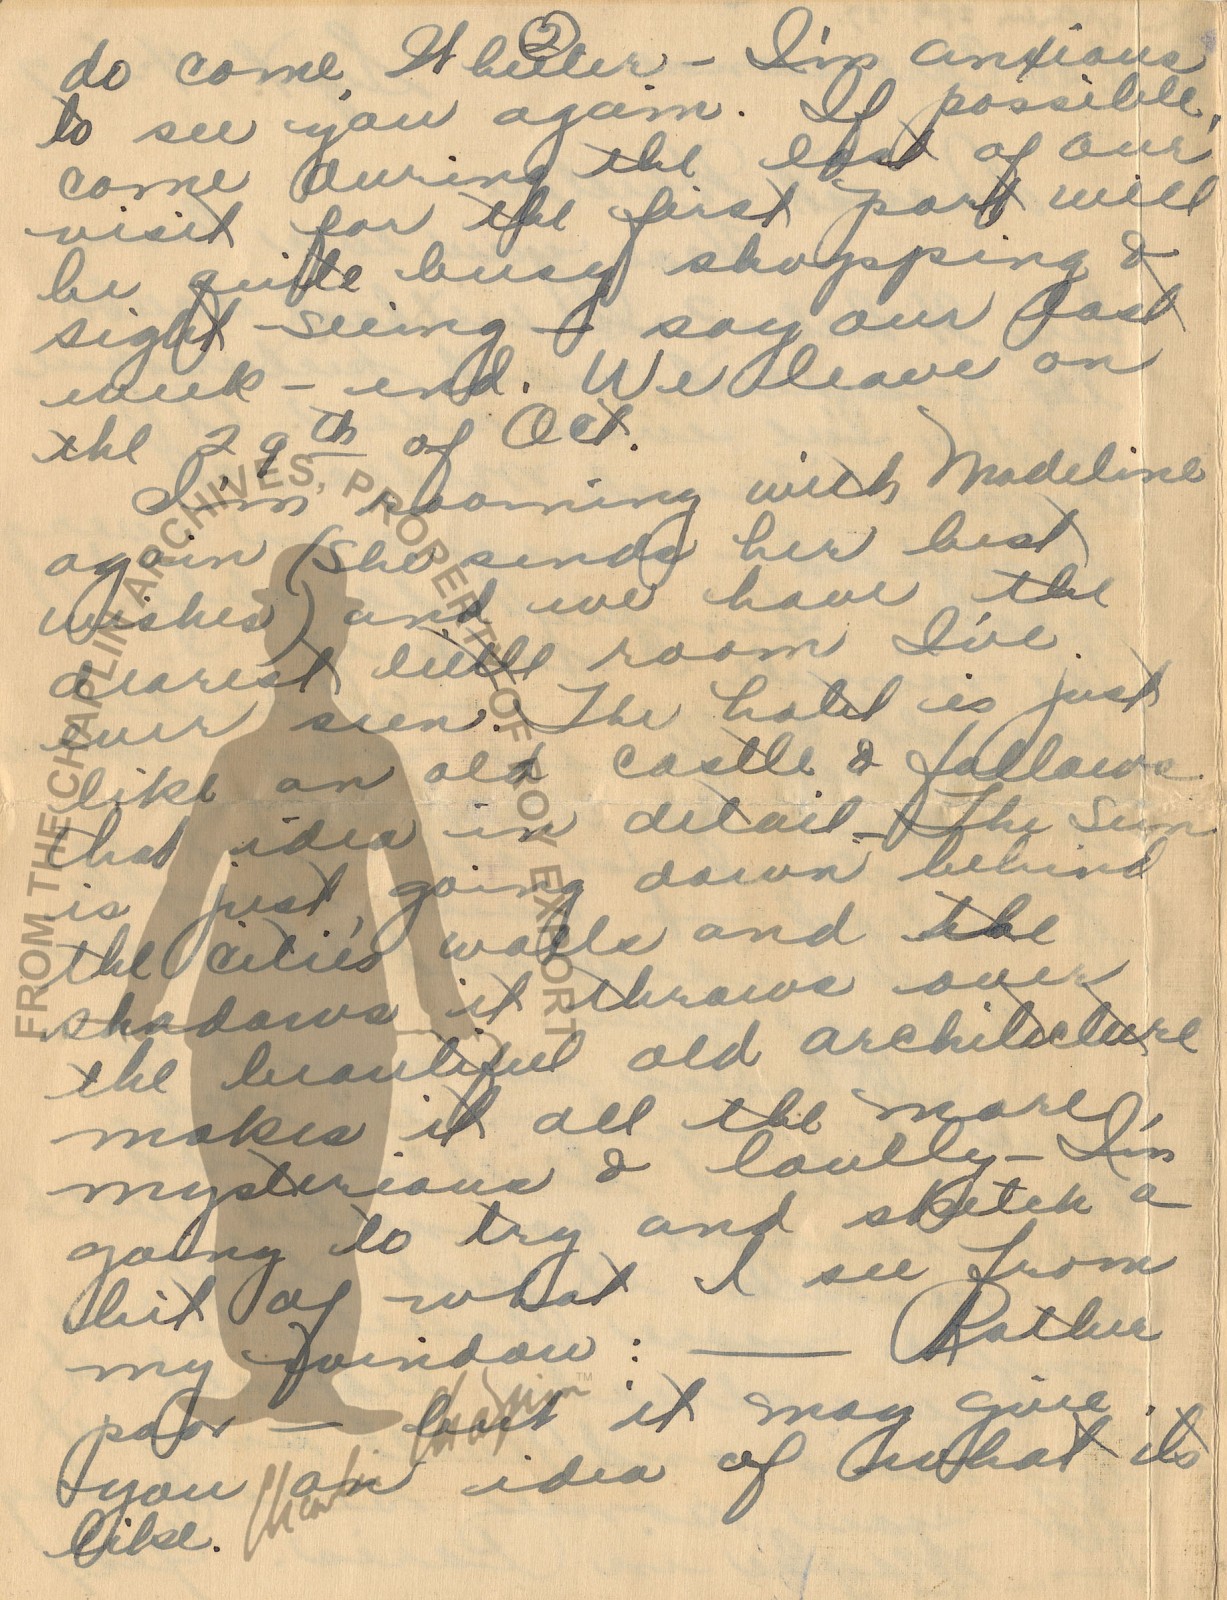 2
do come, Wheeler – I'm anxious
to see you again. If possible,
come during the last of our
visit for the first part will
be quite busy shopping &
sight-seeing – say our last
week-end. We leave on
the 29th of Oct.
I'm rooming with Madeline
again (She sends her best
wishes) and we have the
dearest little room I've
ever seen. The hotel is just
like an old castle & follows
that idea in detail – The Sun
is just going down behind
the cities walls and the
shadows it throws over
the beautiful old architecture
makes it all the more
mysterious & lovely – I'm
going to try and sketch a
bit of what I see from
my window: —— Rather
poor — but it may give
you an idea of what its
like.
FROM THE CHAPLIN ARCHIVES, PROPERTY OF ROY EXPORT
Charlie Chaplin™